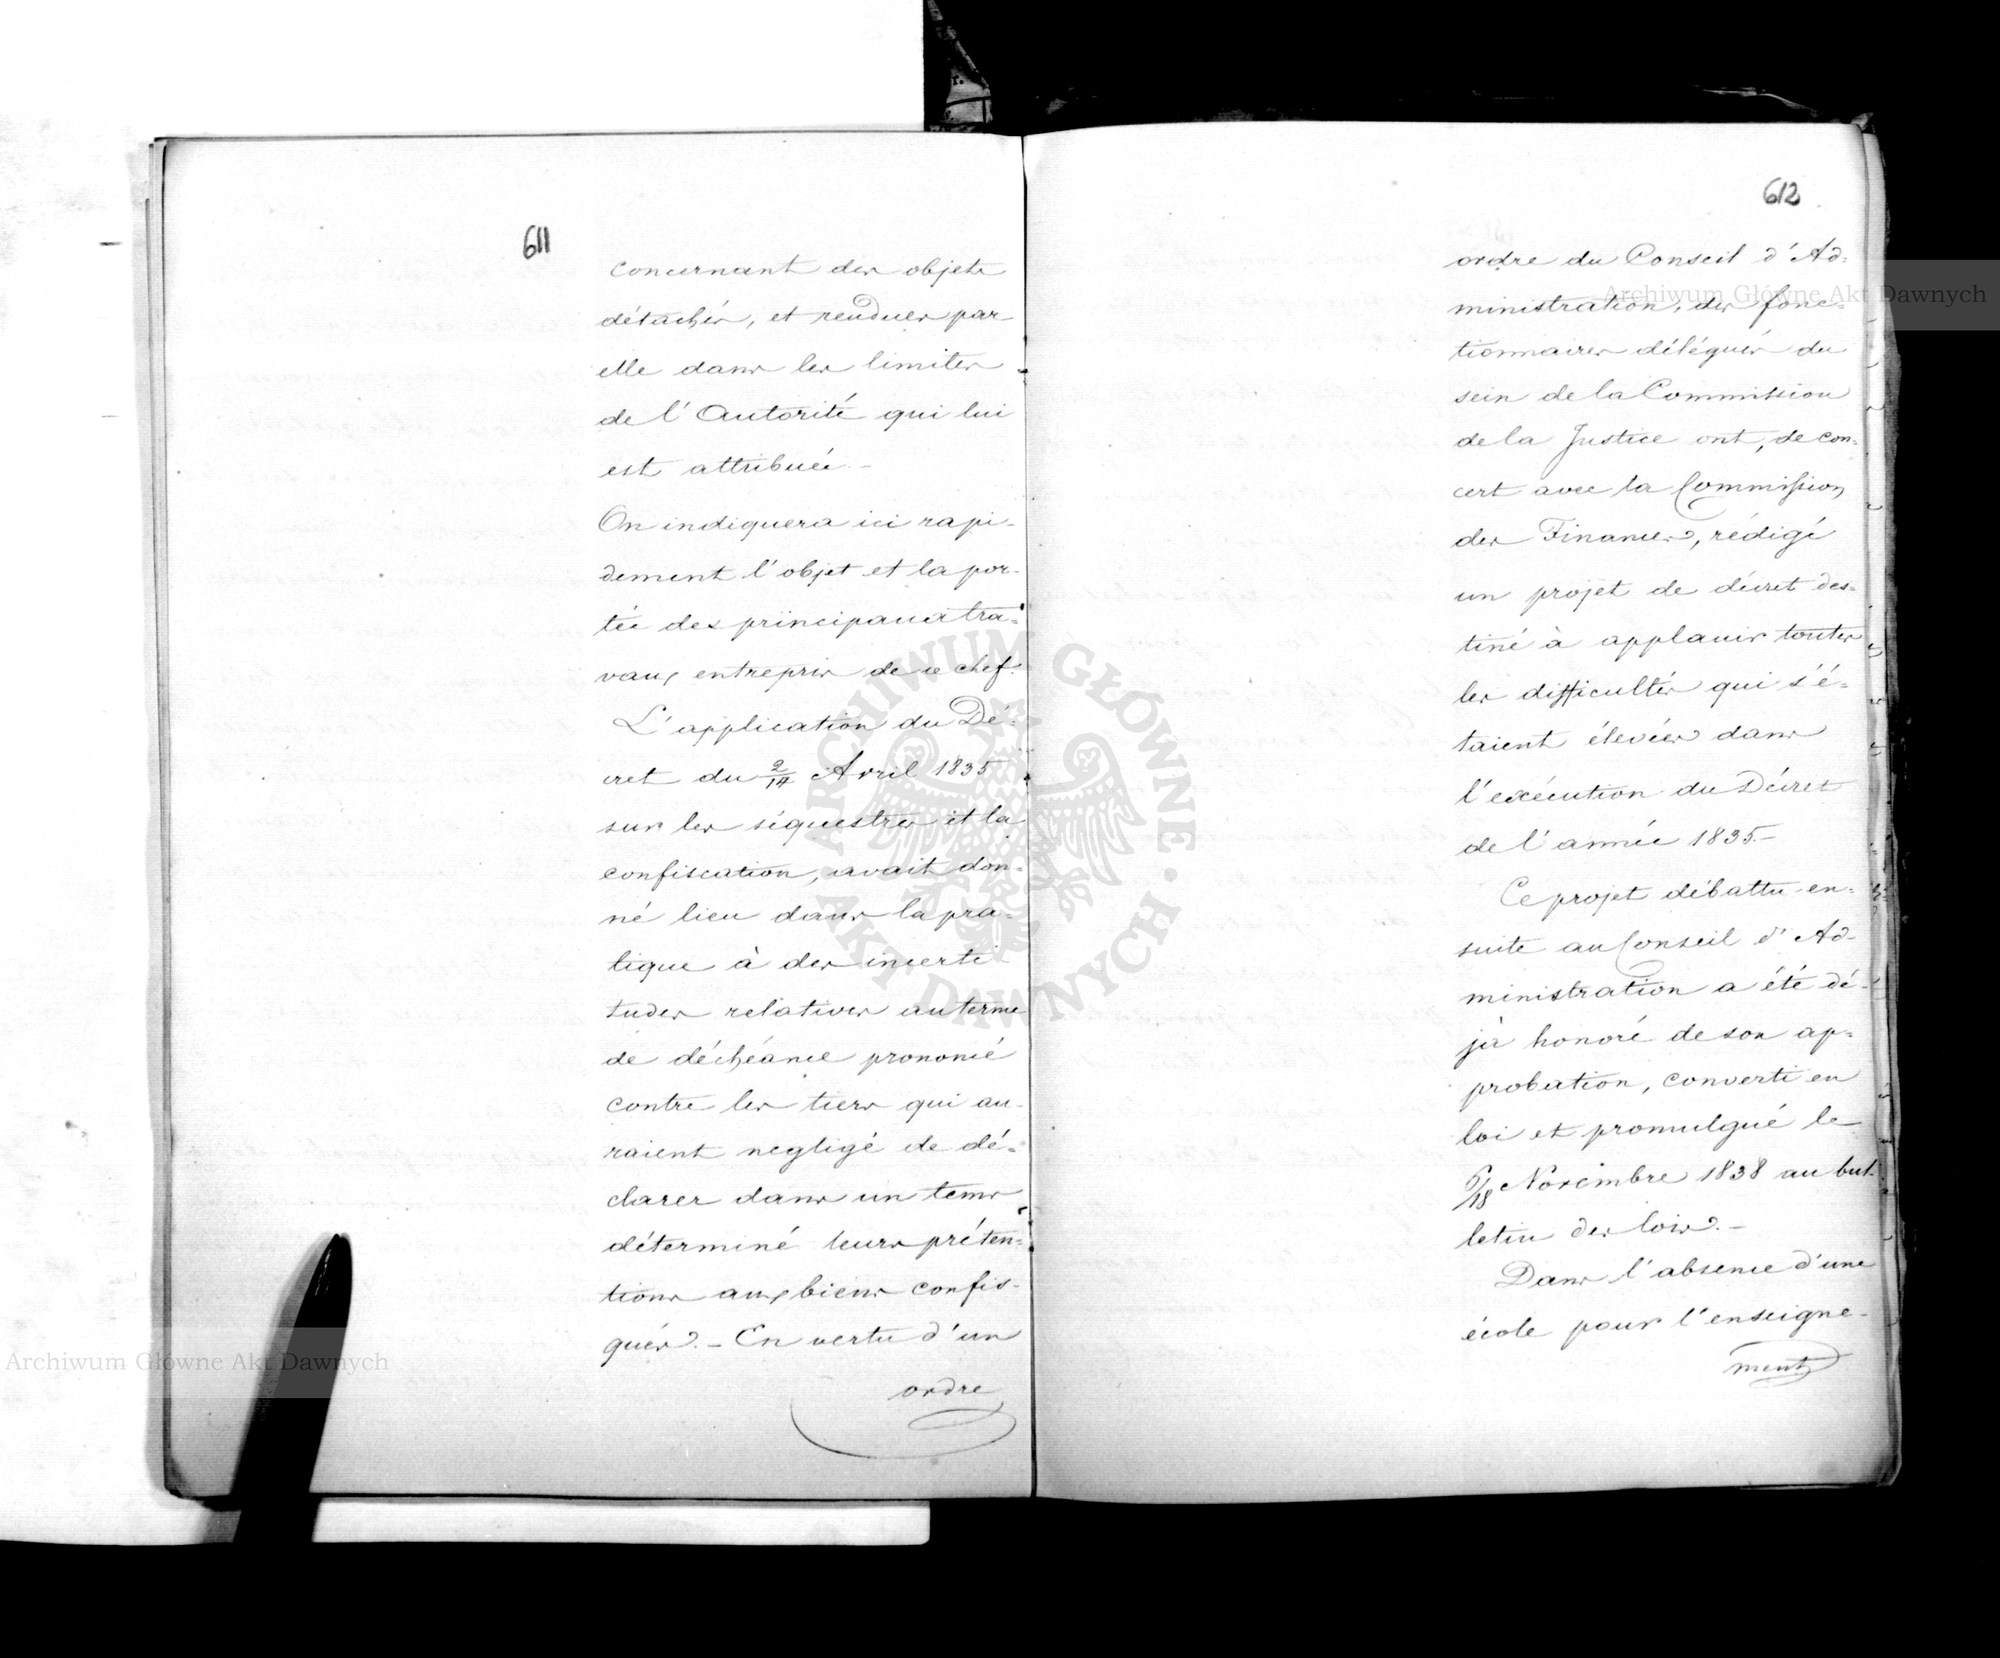 611
concernant des objets
détachés, et rendues par
elle dans les limites
de l'Autorité qui lui
est attribuée. –
On indiquera ici rapi-
dement l'objet et la por-
tée des principaux tra-
vaux entrepris de ce chef.
L'application du Dé-
cret du 2/14 Avril 1835
sur les séquestres et la
confiscation, avait don-
né lieu dans la pra-
tique à des incerti-
tudes relatives au terme
de déchéance prononcé
contre les tiers qui au-
raient negligé de dé-
clarer dans un tems
déterminé leurs préten-
tions aux biens confis-
qués. – En vertu d'un
ordre
612
ordre du Conseil d'Ad-
ministration, des fonc-
tionnaires délégués du
sein de la Commission
de la Justice ont, de con-
cert avec la Commission
des Finances, rédigé
un projet de décret des-
tiné à applanir toutes
les difficultés qui s'é-
taient élevées dans
l'exécution du Décret
de l'année 1835. –
Ce projet débattu en-
suite au Conseil d'Ad-
ministration a été dé-
jà honoré de son ap-
probation, converti en
loi et promulgué le
6/18 Novembre 1838 au bul-
letin des lois. –
Dans l'absence d'une
école pour l'enseigne-
ment
Archiwum Główne Akt Dawnych
Archiwum Główne Akt Dawnych
ARCHIWUM GŁÓWNE AKT DAWNYCH